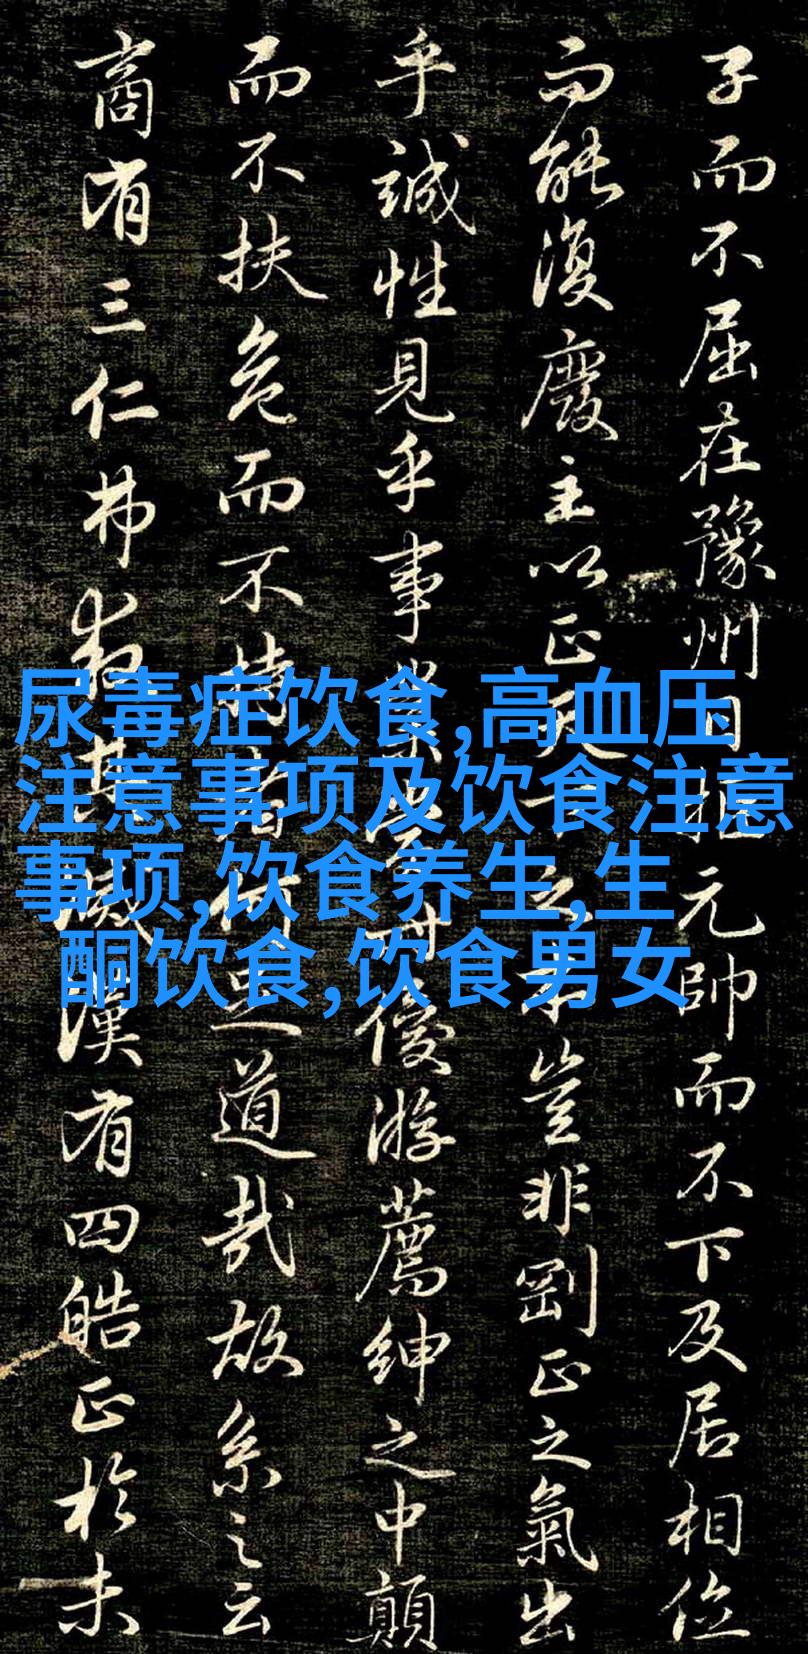 子而不屈在豫州日拒元帥而不下及居相位
而能復廢主以正天下之本豈非剛正之氣出
乎誠性見乎事業當時優游薦紳之中顛
而不扶危而不持者何足道哉故系之云
商有三仁弗救其滅漢有四皓正於未
尿毒症饮食,高血压
注意事项及饮食注意
事项,饮食养生,生
酮饮食,饮食男女